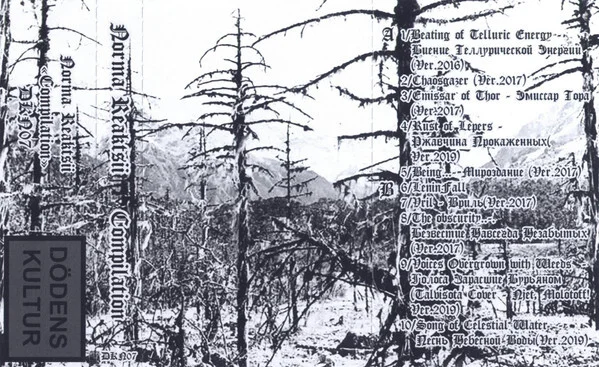 Norma Reaktsii
«Compilation»
DKN07
DÖDENS
KULTUR
Norma Reaktsii - Compilation
DKN07
A
1/Beating of Telluric Energy -
Биение Теллурической Энергии
(Ver.2016)
2/Chaosgazer (Ver.2017)
3/Emissar of Thor - Эмиссар Тора
(Ver.2017)
4/Rust of Lepers -
Ржавчина Прокаженных(
Ver.2019)
5/Being...--Мироздание (Ver.2017)
B
6/LeninFall
7/Vril - Вриль(Ver.2017)
8/The obscurity...-
Безвестие Навсегда Незабытых
(Ver.2017)
9/Voices Overgrown with Weeds -
Голоса Заросшие Бурьяном
(Talbisota Cover - Njet, Molotoff!
Ver.2019)
10/Song of Celestial Water -
Песнь Небесной Воды(Ver.2019)